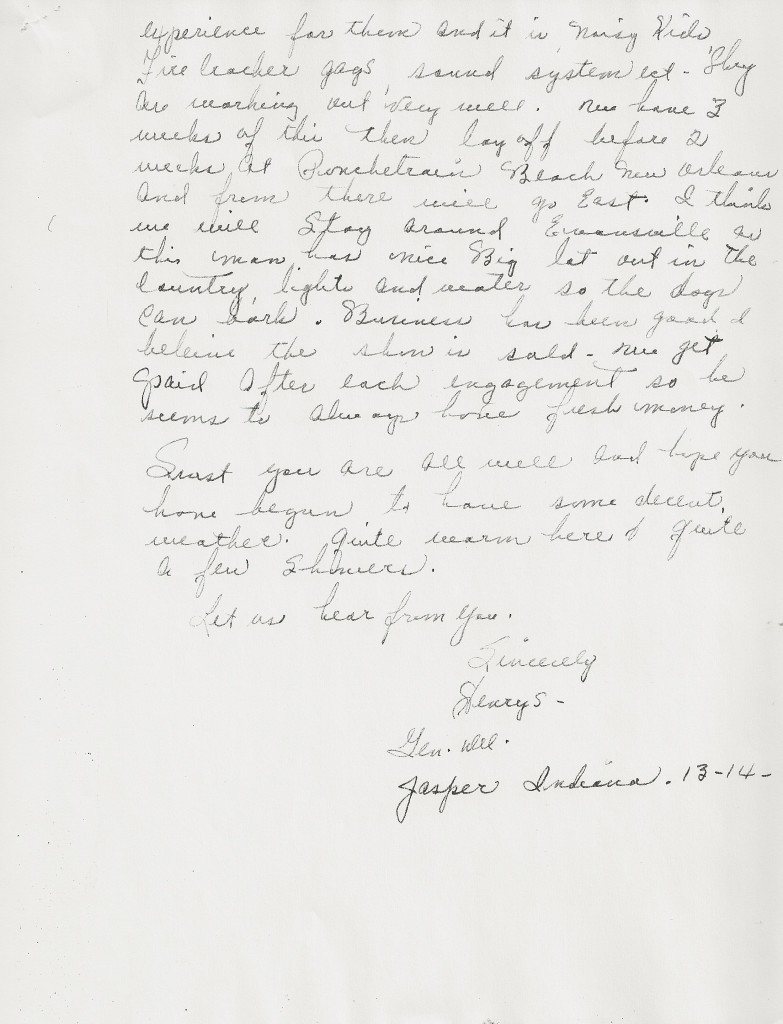 experience for them and it is noisy Kids
Fire cracker gags sound system ect - They
are working out very well. We have 3
weeks of this then lay off before 2
weeks at Ponchetrain Beach New Orleans
and from there will go East. I think
we will Stay around Evansville as
this man has nice Big lot out in the
Country lights and water so the dogs
can bark. Business has been good I
beleive the show is sold - We get
paid after each engagement so he
seems to always have fresh money.
Trust you are all well and hope you
have begun to have some decent
weather. Quite warm here & quite
a few Showers.
Let us hear from you.
Sincerely
Henrys -
Gen. Del.
Jasper Indiana. 13-14-